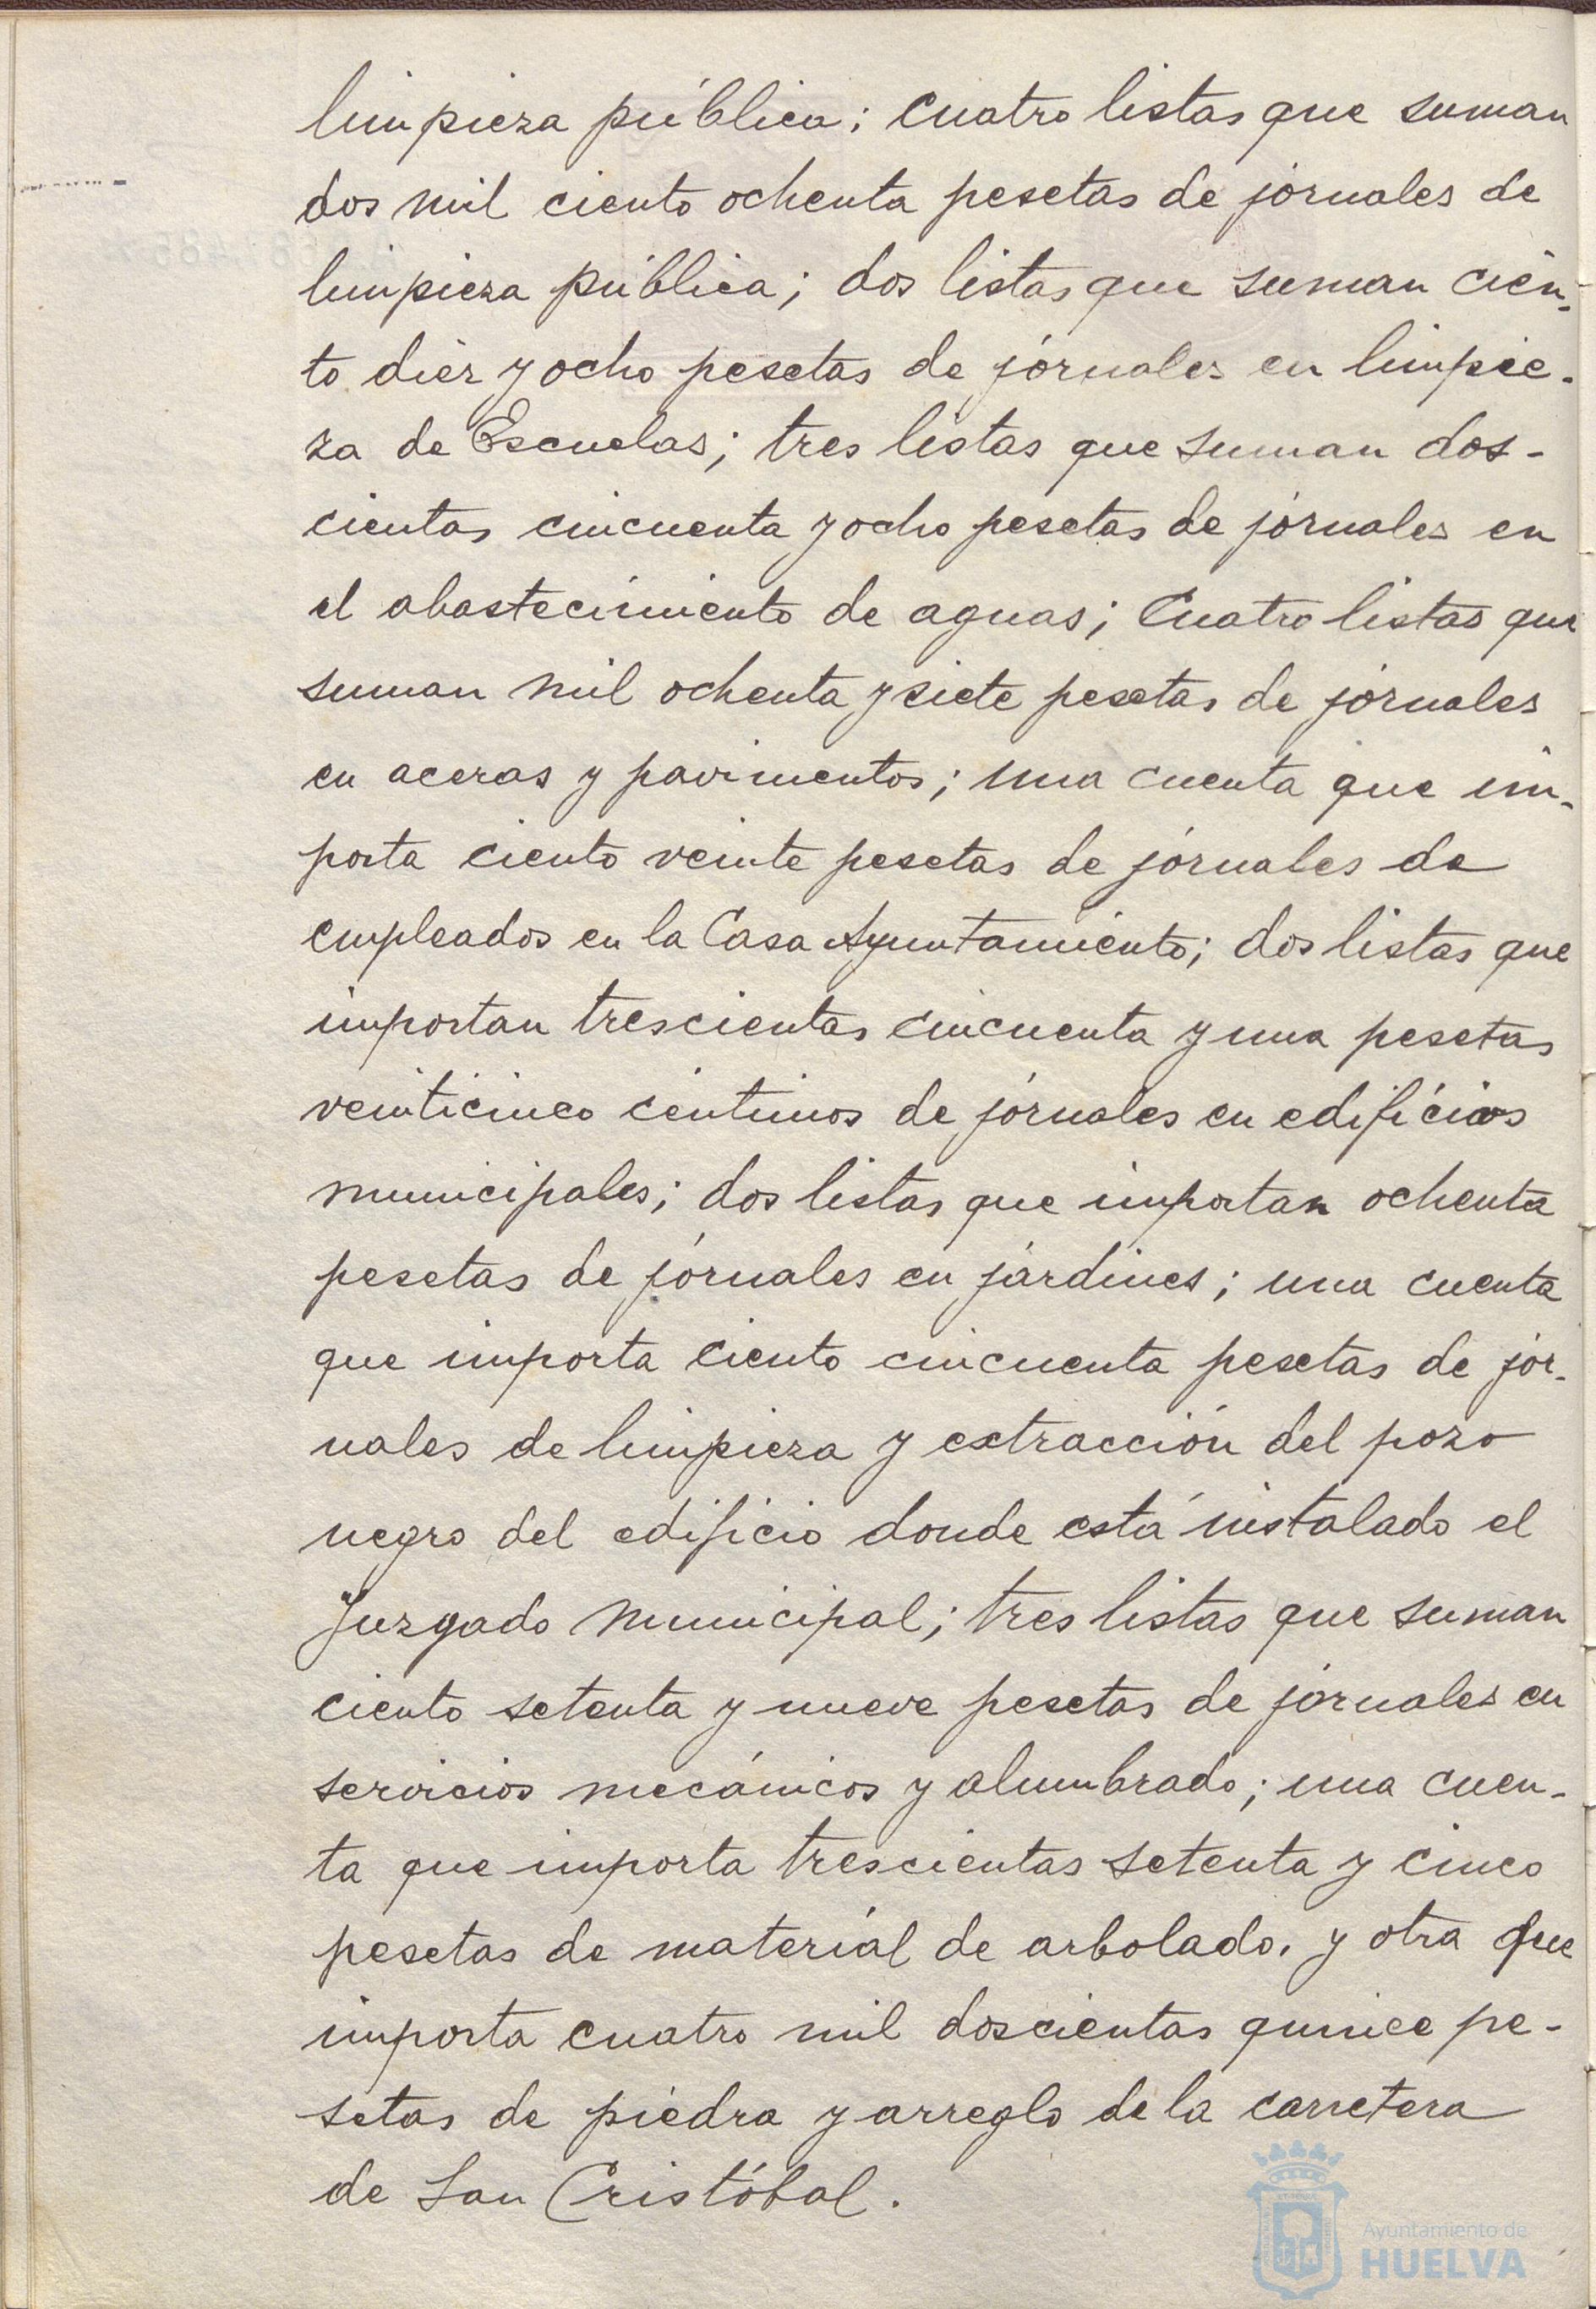 limpieza pública; cuatro listas que suman
dos mil ciento ochenta pesetas de jornales de
limpieza pública; dos listas que suman cien-
to diez y ocho pesetas de jornales en limpie-
za de Escuelas; tres listas que suman dos-
cientas cincuenta y ocho pesetas de jornales en
el abastecimiento de aguas; cuatro listas que
suman mil ochenta y siete pesetas de jornales
en aceras y pavimentos; una cuenta que im-
porta ciento veinte pesetas de jornales de
empleados en la Casa Ayuntamiento; dos listas que
importan trescientas cincuenta y una pesetas
veinticinco céntimos de jornales en edificios
municipales; dos listas que importan ochenta
pesetas de jornales en jardines; una cuenta
que importa ciento cincuenta pesetas de jor-
nales de limpieza y extracción del pozo
negro del edificio donde está instalado el
Juzgado municipal; tres listas que suman
ciento setenta y nueve pesetas de jornales en
servicios mecánicos y alumbrado; una cuen-
ta que importa trescientas setenta y cinco
pesetas de material de arbolado. y otra que
importa cuatro mil doscientas quince pe-
setas de piedra y arreglo de la carretera
de San Cristóbal.
Ayuntamiento de
HUELVA